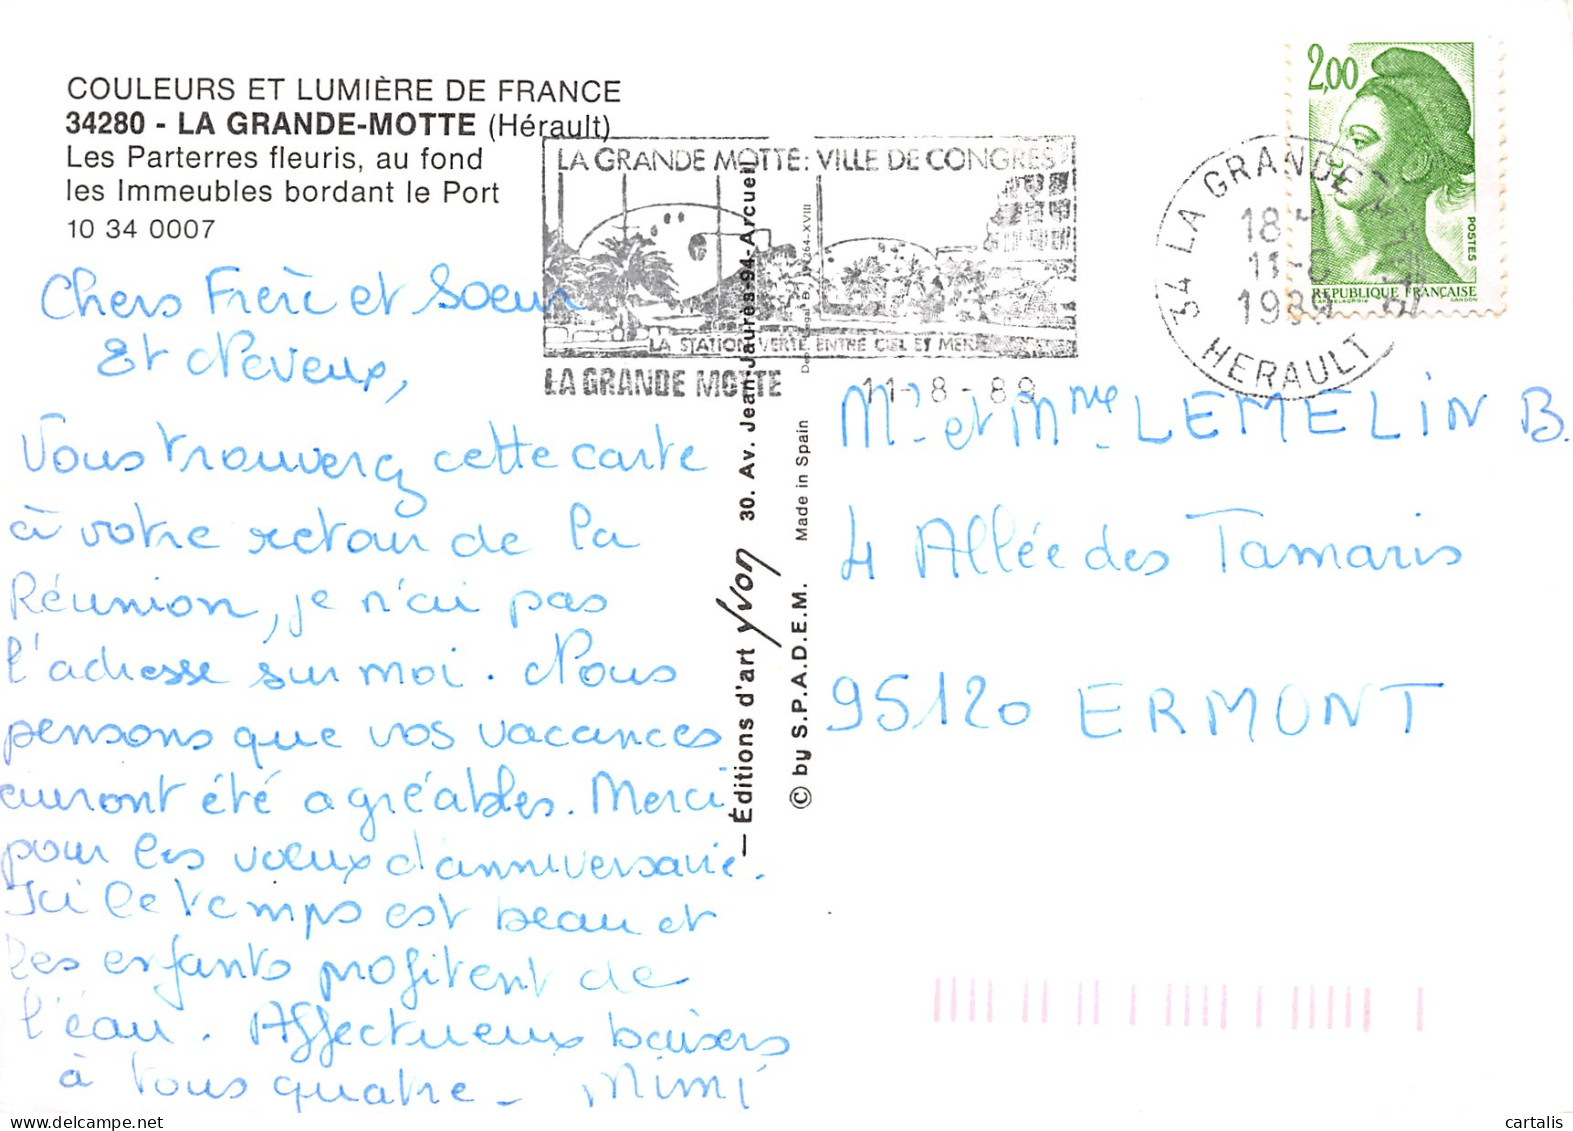 COULEURS ET LUMIÈRE DE FRANCE
34280 - LA GRANDE-MOTTE (Hérault)
Les Parterres fleuris, au fond
les Immeubles bordant le Port
10 34 0007
LA GRANDE MOTTE: VILLE DE CONGRES
LA STATION VERTE ENTRE CIEL ET MER
LA GRANDE MOTTE
11-8-89
34 LA GRANDE MOTTE
18
11-8
1989
HERAULT
2,00
POSTES
RÉPUBLIQUE FRANÇAISE
GANDON
Chers Frère et Soeur
Et Neveux,
Vous trouverez cette carte
à votre retour de la
Réunion, je n'ai pas
l'adresse sur moi. Nous
pensons que vos vacances
auront été agréables. Merci
pour les voeux d'anniversaire.
Ici le temps est beau et
les enfants profitent de
l'eau. Affectueux baisers
à vous quatre - Mimi
— Éditions d'art Yvon 30. Av. Jean-Jaurès-94-Arcueil
© by S.P.A.D.E.M. Made in Spain
Mr et Mme LEMELIN B.
4 Allée des Tamaris
95120 ERMONT
cartalis